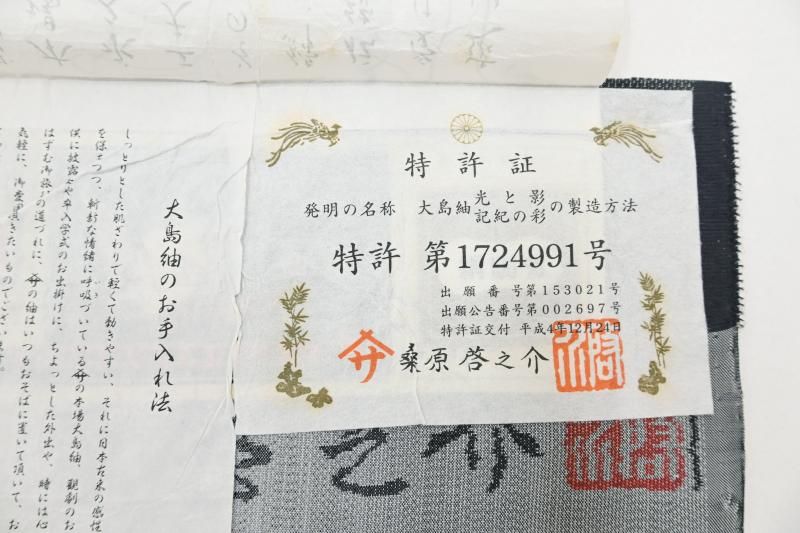 特許証
発明の名称 大島紬光と影記紀の彩の製造方法
特許 第1724991号
出願番号第153021号
出願公告番号第002697号
特許証交付 平成4年12月24日
桑原啓之介
大島紬のお手入れ法
しっとりとした肌ざわりで軽くて動きやすい、それに日本古来の感性
を保ちつつ、斬新な情緒に呼吸づいている の本場大島紬、観劇のお
供に披露々や卒入学式のお出掛けに、ちょっとした外出や、時には心
はずむ御旅の道づれに、 の紬はいつもおそばに置いて頂いて、お
気軽に、御愛用きたいものでございます。
之介